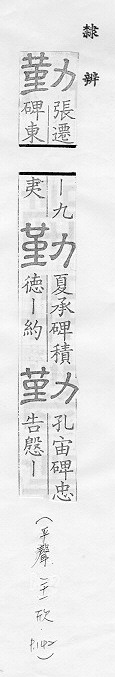 隸辨
勤 張遷
碑東
｜九
夷
勤 夏承碑積
德｜約
勤 孔宙碑忠
告慇｜
(平聲 二十一 欣 P.142)